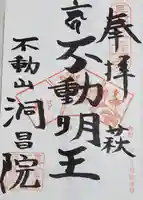 奉拝
萩
不動明王
不動山
洞昌院